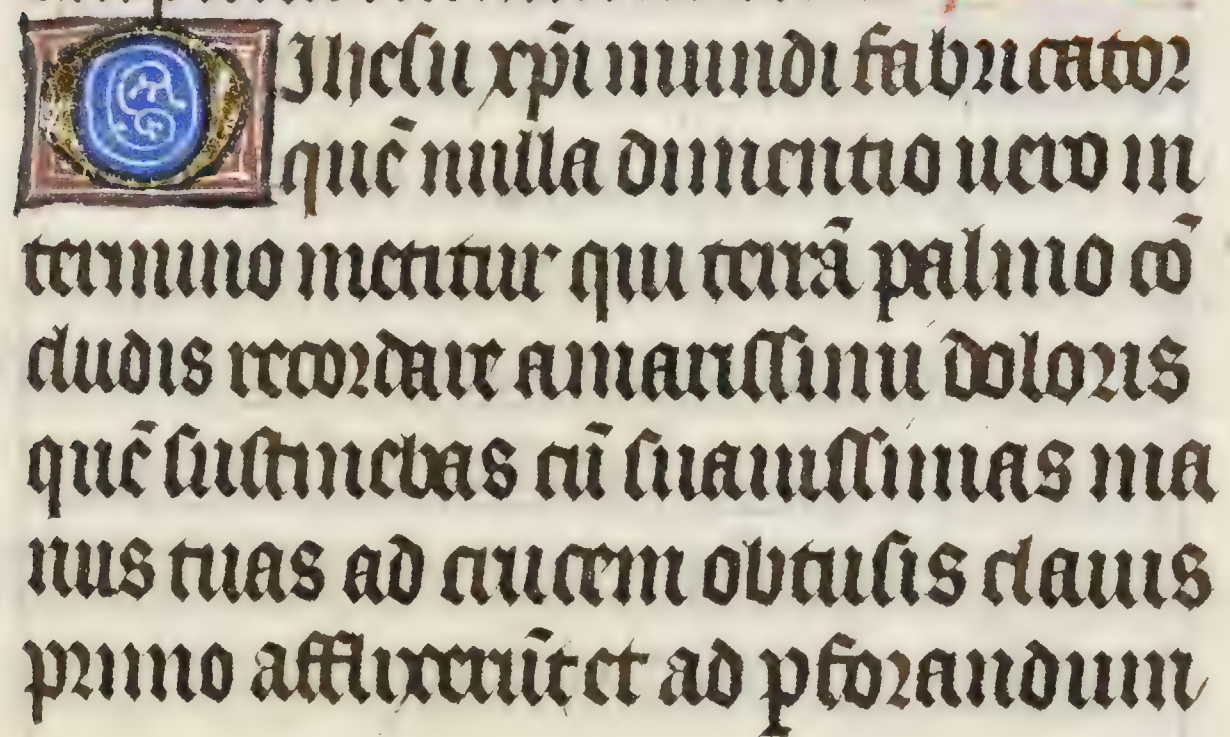 O Jhesu xp̄i mundi fabricator
quē nulla dimentio uero in
termino metitur qui terrā palmo cō
cludis recordare amarissimi doloris
quē sustinebas cū suauissimas ma
nus tuas ad crucem obtusis clauis
primo affixerūt et ad pforandum